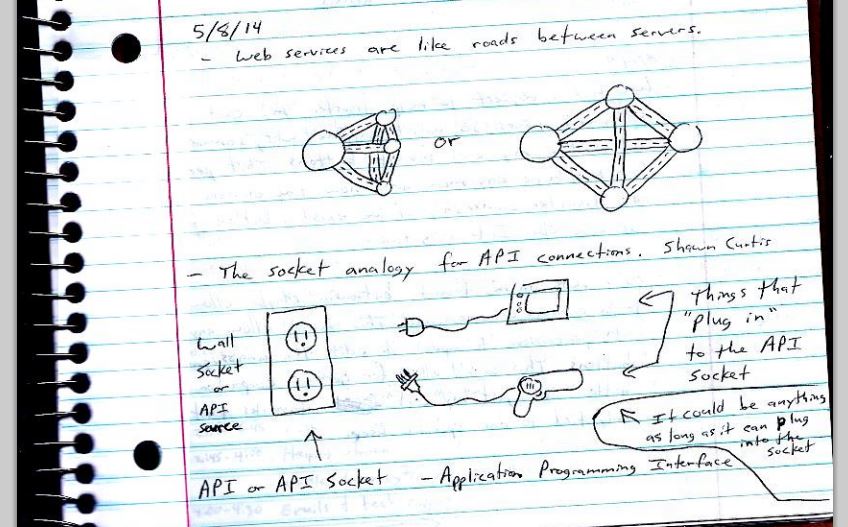 5/8/14
- Web services are like roads between servers.
or
- The socket analogy for API connections. Shawn Curtis
Wall
Socket
or
API
source
Things that
"plug in"
to the API
socket
It could be anything
as long as it can plug
into the
socket
API or API Socket - Application Programming Interface